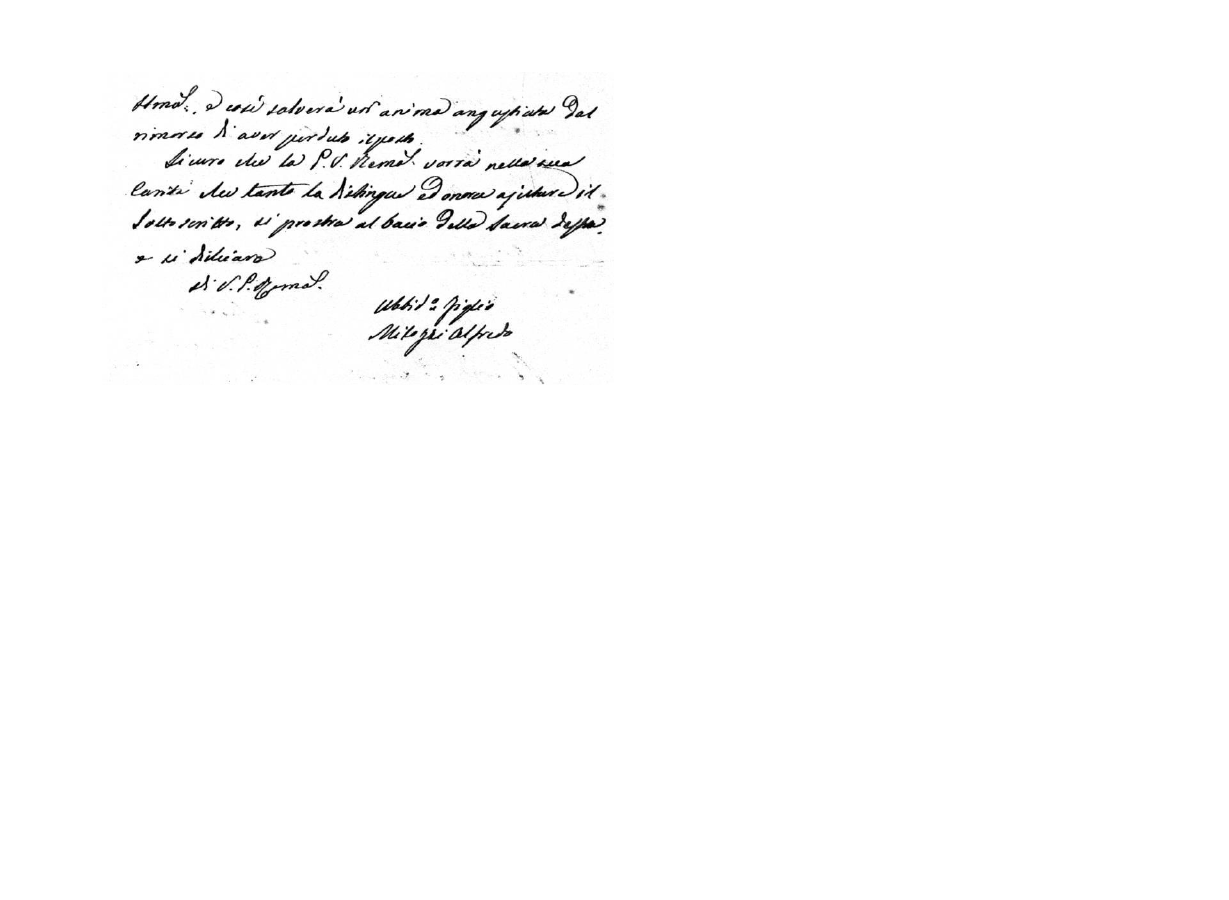 e così salverà un'anima angustiata dal
rimorso di aver perduto il posto.
Sicuro che la P. V. Rema. vorrà nella sua
Carità che tanto la distingue ed onora ajutare il
Sottoscritto, si prostra al bacio della Sacra destra.
e si dichiara
di V. P. Rema.
Ubbido. figlio
Alfredo